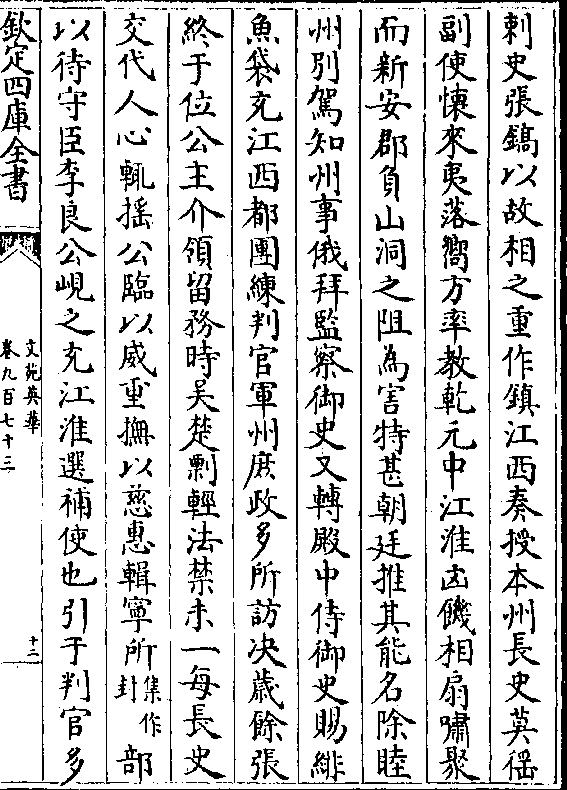 刺史張鎬以故相之重作鎮江西奏授本州長史莫徭
副使懷來夷落嚮方率教乾元中江淮凶饑相扇嘯聚
而新安郡負山洞之阻為害特甚朝廷推其能名除睦
州别駕知州事俄拜監察御史又轉殿中侍御史賜緋
魚袋充江西都團練判官軍州庶政多所訪决歳餘張
終于位公主介領留務時吳楚剽輕法禁未一每長史
交代人心輒揺公臨以威重撫以慈惠輯寧所集作封部
以待守臣李良公峴之充江淮選補使也引于判官多
欽定四庫全書
文苑英華
卷九百七十三
十二